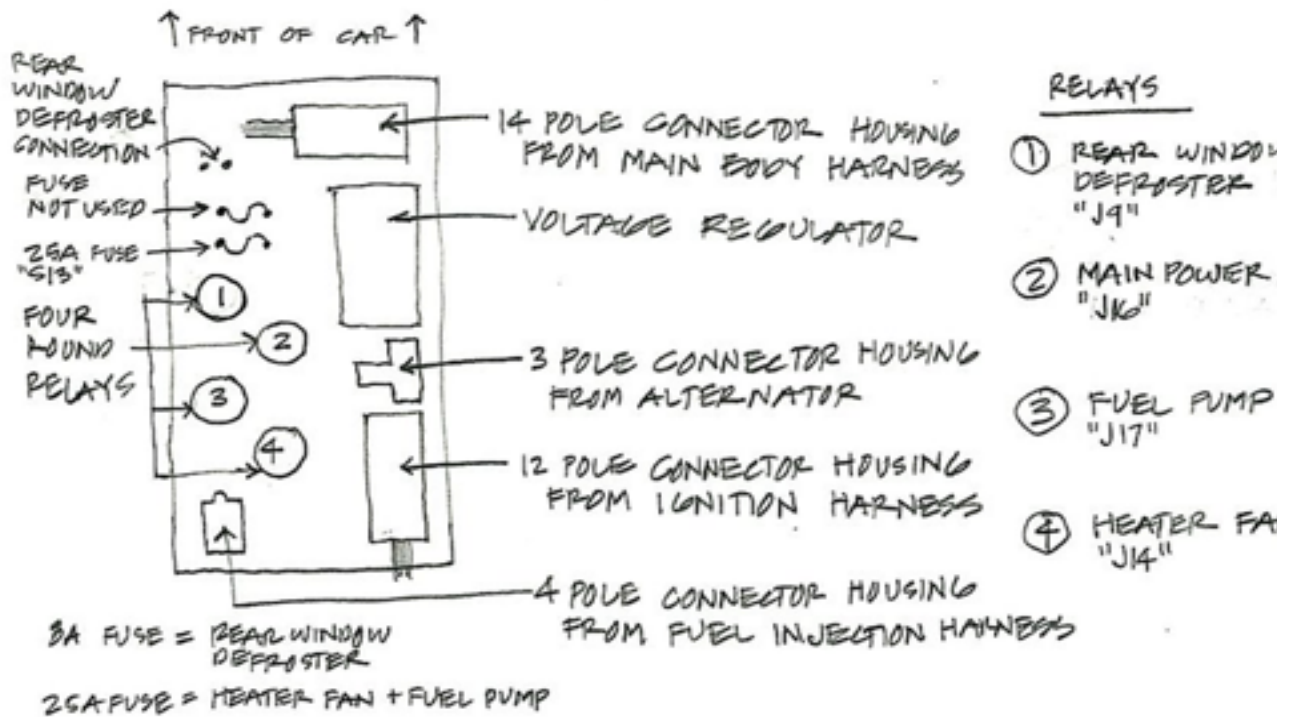 ↑ FRONT OF CAR ↑
REAR
WINDOW
DEFROSTER
CONNECTION
FUSE
NOT USED
25A FUSE
"S13"
FOUR
ROUND
RELAYS
1
2
3
4
14 POLE CONNECTOR HOUSING
FROM MAIN BODY HARNESS
VOLTAGE REGULATOR
3 POLE CONNECTOR HOUSING
FROM ALTERNATOR
12 POLE CONNECTOR HOUSING
FROM IGNITION HARNESS
4 POLE CONNECTOR HOUSING
FROM FUEL INJECTION HARNESS
8A FUSE = REAR WINDOW
DEFROSTER
25A FUSE = HEATER FAN + FUEL PUMP
RELAYS
1 REAR WINDO
DEFROSTER
"J9"
2 MAIN POWER
"J16"
3 FUEL PUMP
"J17"
4 HEATER FA
"J14"